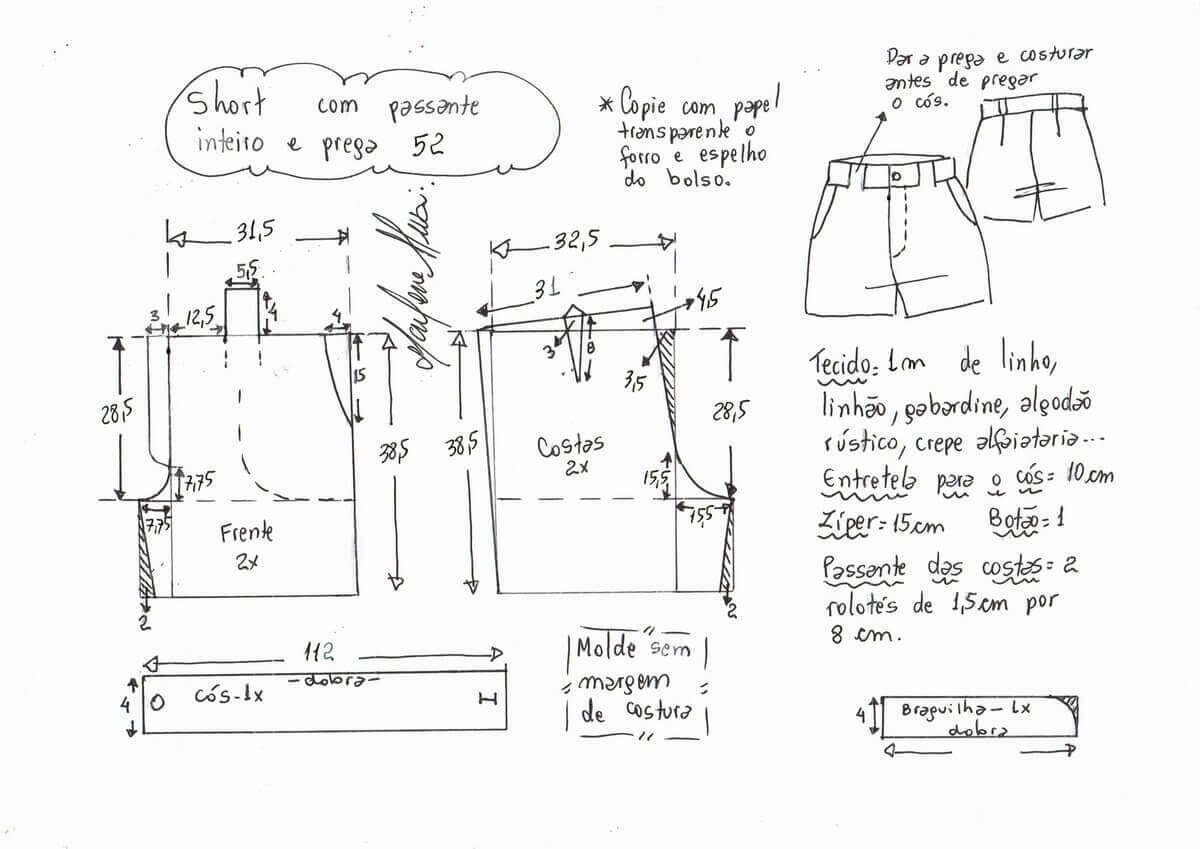 Short com passante
inteiro e prega 52
* Copie com papel
transparente o
forro e espelho
do bolso.
Dar a prega e costurar
antes de pregar
o cós.
31,5
5,5
3
12,5
4
4
15
28,5
38,5
7,75
7,75
Frente
2x
2
32,5
31
4,5
3
8
3,5
28,5
38,5
Costas
2x
15,5
15,5
2
Tecido = 1m de linho,
linhão, gabardine, algodão
rústico, crepe alfaiataria...
Entretela para o cós = 10cm
Zíper = 15cm Botão = 1
Passante das costas = 2
rolotés de 1,5cm por
8 cm.
112
-dobra-
4
cós-1x
Molde sem
margem
de costura
4
Braguilha-1x
dobra